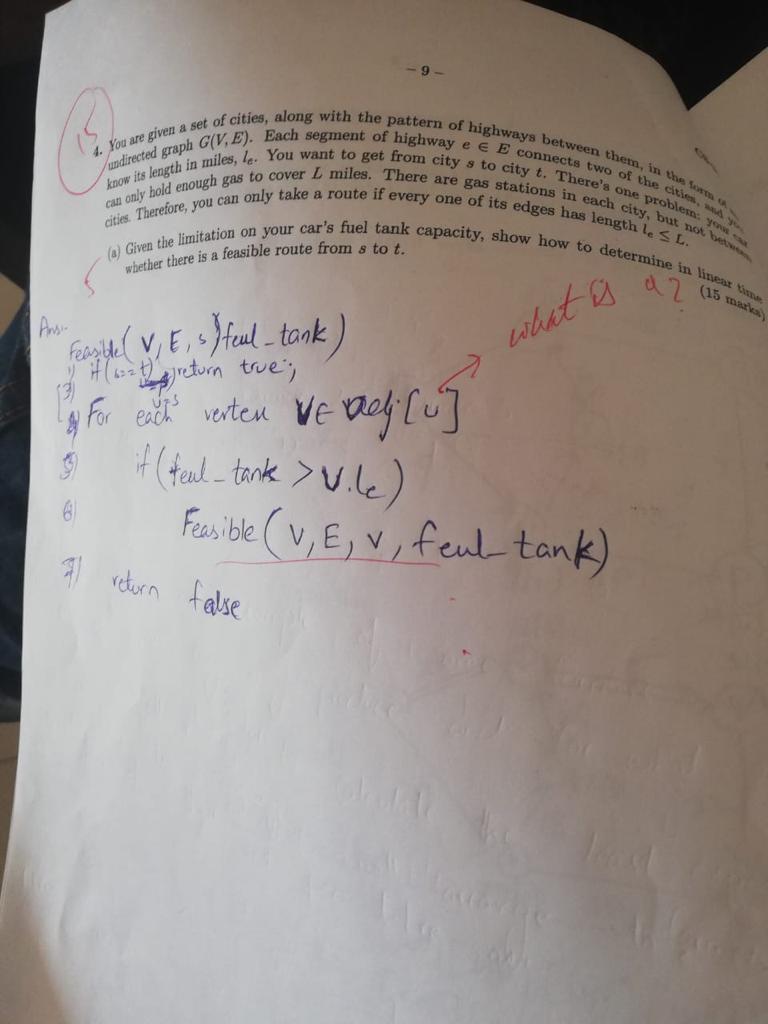 - 9 -
15
4. You are given a set of cities, along with the pattern of highways between them, in the form of
undirected graph G(V, E). Each segment of highway e ∈ E connects two of the cities, and you
know its length in miles, lₑ. You want to get from city s to city t. There's one problem: your car
can only hold enough gas to cover L miles. There are gas stations in each city, but not between
cities. Therefore, you can only take a route if every one of its edges has length lₑ ≤ L.
(a) Given the limitation on your car's fuel tank capacity, show how to determine in linear time
whether there is a feasible route from s to t.
(15 marks)
5
what is u?
Ans:-
Feasible( V, E, s, feul_tank)
1) if (s==t) return true;
3) u=s
4) For each vertex V∈ adj[u]
5) if (feul_tank > V.lₑ)
6) Feasible (V, E, v, feul_tank)
7) return false